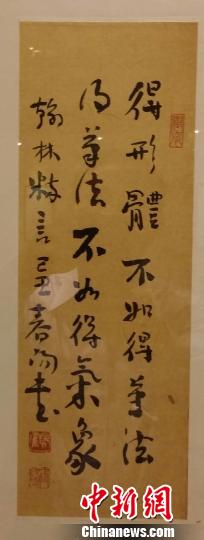 得形體不如得筆法
得筆法不如得氣象
翰林粹言己丑春書
中新網
Chinanews.com